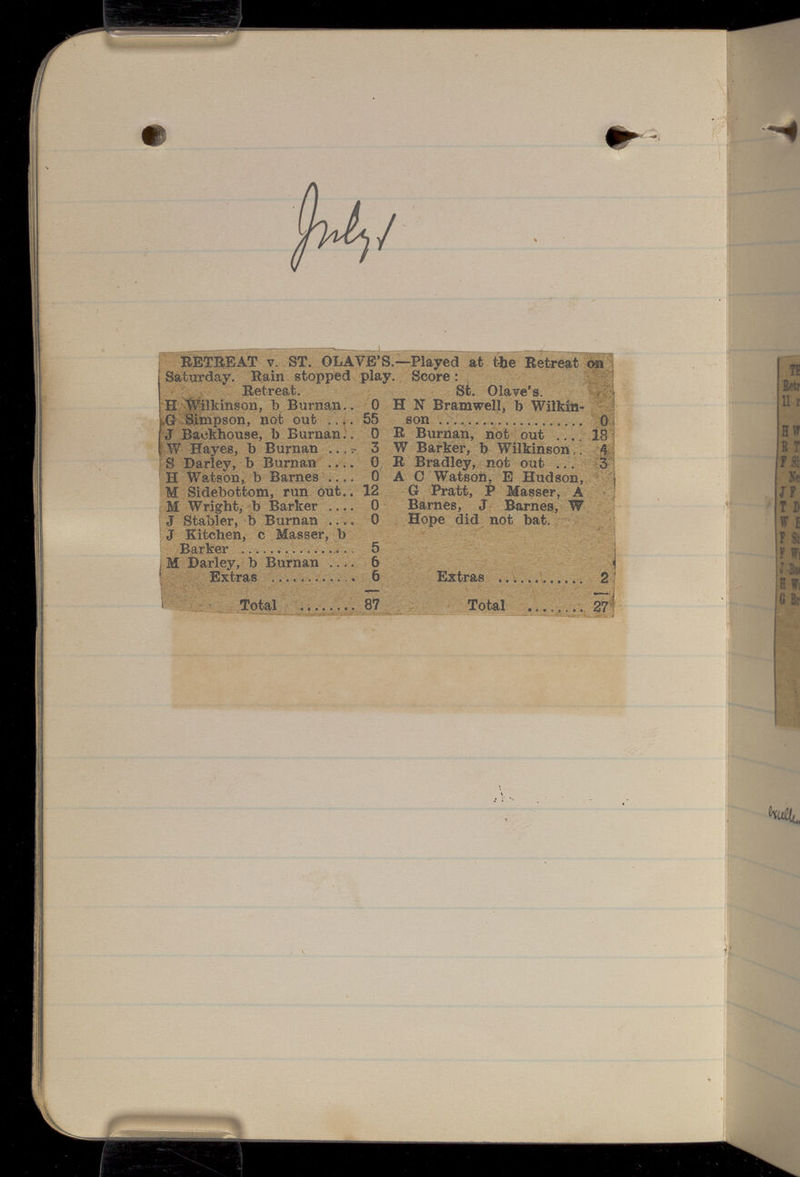 July 1
RETREAT v. ST. OLAVE'S.—Played at the Retreat on
Saturday. Rain stopped play. Score:
Retreat.
H Wilkinson, b Burnan.. 0
G Simpson, not out .... 55
J Backhouse, b Burnan.. 0
W Hayes, b Burnan .... 3
S Darley, b Burnan .... 0
H Watson, b Barnes .... 0
M Sidebottom, run out.. 12
M Wright, b Barker .... 0
J Stabler, b Burnan .... 0
J Kitchen, c Masser, b
Barker ............... 5
M Darley, b Burnan .... 6
Extras ............ 6
Total ........ 87
St. Olave's.
H N Bramwell, b Wilkin-
son ................... 0
R Burnan, not out .... 18
W Barker, b Wilkinson.. 4
R Bradley, not out ... 3
A C Watson, E Hudson,
G Pratt, P Masser, A
Barnes, J Barnes, W
Hope did not bat.
Extras ............ 2
Total ........ 27